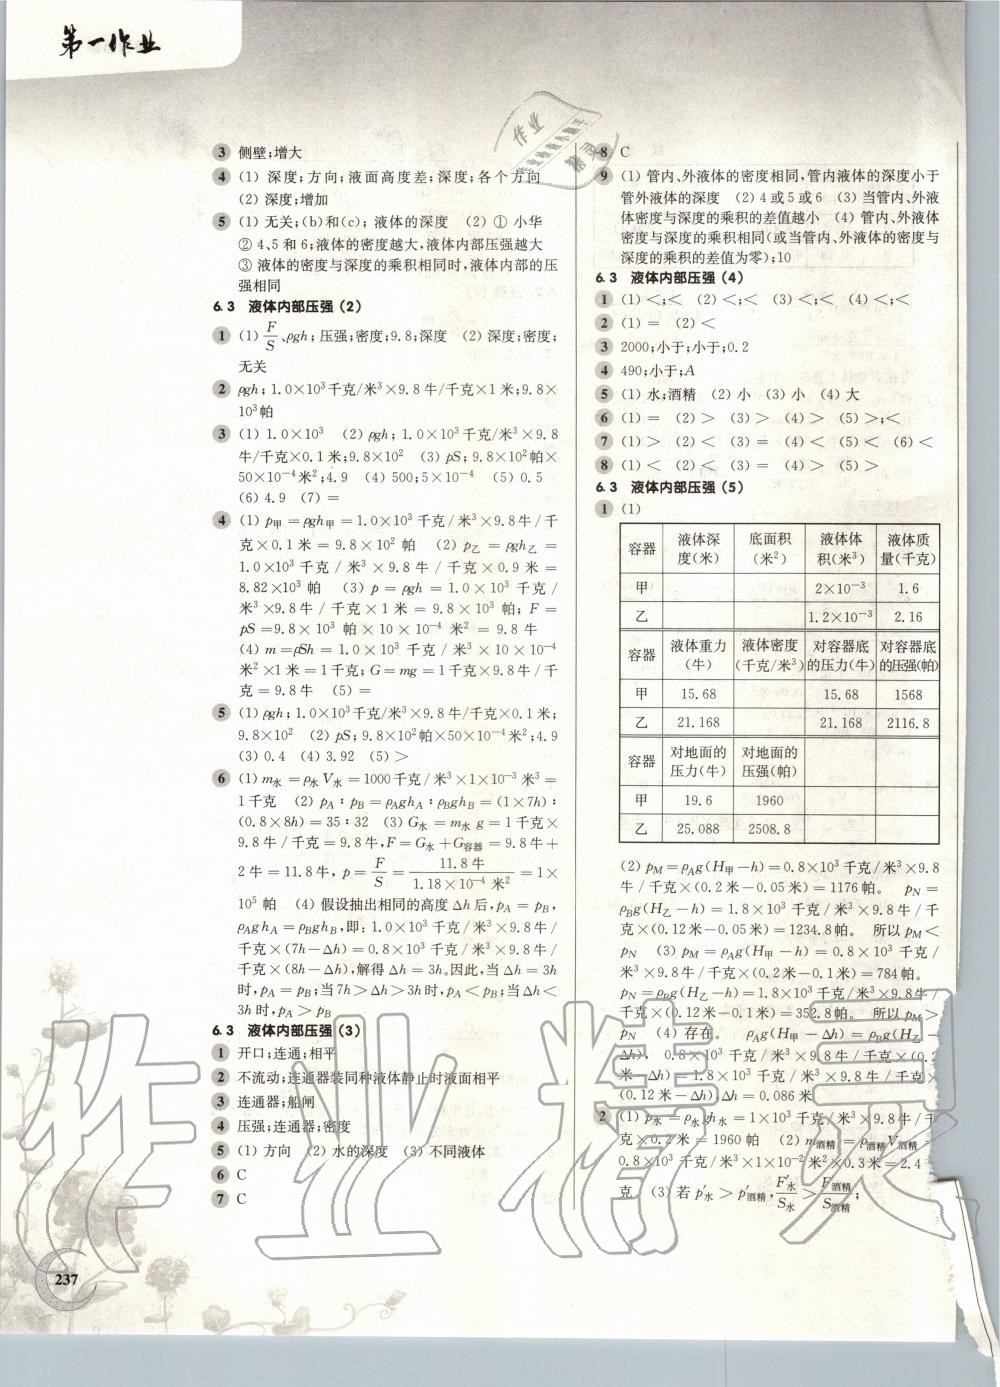 第一作业
3 侧壁;增大
4 (1) 深度;方向;液面高度差;深度;各个方向
(2) 深度;增加
5 (1) 无关;(b)和(c); 液体的深度 (2) ① 小华
② 4、5 和 6;液体的密度越大,液体内部压强越大
③ 液体的密度与深度的乘积相同时,液体内部的压
强相同
6.3 液体内部压强(2)
1 (1) F/S、ρgh;压强;密度;9.8;深度 (2) 深度;密度;
无关
2 ρgh;1.0×10³千克/米³×9.8 牛/千克×1 米;9.8×
10³帕
3 (1) 1.0×10³ (2) ρgh;1.0×10³千克/米³×9.8
牛/千克×0.1 米;9.8×10² (3) pS;9.8×10²帕×
50×10⁻⁴米²;4.9 (4) 500;5×10⁻⁴ (5) 0.5
(6) 4.9 (7) =
4 (1) p甲 = ρgh甲 = 1.0×10³ 千克/米³×9.8 牛/千
克×0.1 米 = 9.8×10² 帕 (2) p乙 = ρgh乙 =
1.0×10³ 千克 / 米³ × 9.8 牛 / 千克 × 0.9 米 =
8.82×10³ 帕 (3) p = ρgh = 1.0 × 10³ 千克 /
米³ ×9.8 牛 / 千克 × 1 米 = 9.8 × 10³ 帕; F =
pS =9.8× 10³ 帕 × 10 × 10⁻⁴ 米² = 9.8 牛
(4) m =ρSh = 1.0 × 10³ 千克 / 米³ × 10 × 10⁻⁴
米² ×1 米 = 1 千克; G = mg = 1 千克×9.8 牛/千
克 = 9.8 牛 (5) =
5 (1) ρgh;1.0×10³千克/米³×9.8 牛/千克×0.1 米;
9.8×10² (2) pS;9.8×10²帕×50×10⁻⁴米²;4.9
(3) 0.4 (4) 3.92 (5) >
6 (1) m水 = ρ水 V水 = 1000 千克/米³×1×10⁻³ 米³ =
1 千克 (2) pA : pB = ρAghA : ρBghB = (1×7h) :
(0.8×8h) = 35 : 32 (3) G水 = m水 g = 1 千克×
9.8 牛/千克 = 9.8 牛,F = G水 +G容器 = 9.8 牛+
2 牛 = 11.8 牛, p = F/S = 11.8 牛/1.18×10⁻⁴ 米² = 1×
10⁵ 帕 (4) 假设抽出相同的高度 Δh 后,pA = pB,
ρAghA = ρBghB,即: 1.0×10³ 千克/米³×9.8 牛/
千克×(7h-Δh) = 0.8×10³ 千克/米³×9.8 牛/
千克×(8h-Δh),解得 Δh = 3h。因此,当 Δh = 3h
时,pA = pB;当 7h> Δh>3h 时,pA < pB;当 Δh<
3h 时,pA > pB
6.3 液体内部压强(3)
1 开口;连通;相平
2 不流动;连通器装同种液体静止时液面相平
3 连通器;船闸
4 压强;连通器;密度
5 (1) 方向 (2) 水的深度 (3) 不同液体
6 C
7 C
8 C
9 (1) 管内、外液体的密度相同,管内液体的深度小于
管外液体的深度 (2) 4 或 5 或 6 (3) 当管内、外液
体密度与深度的乘积的差值越小 (4) 管内、外液体
密度与深度的乘积相同(或当管内、外液体的密度与
深度的乘积的差值为零);10
6.3 液体内部压强(4)
1 (1) <;< (2) <;< (3) <;< (4) <;<
2 (1) = (2) <
3 2000;小于;小于;0.2
4 490;小于;A
5 (1) 水;酒精 (2) 小 (3) 小 (4) 大
6 (1) = (2) > (3) > (4) > (5) >;<
7 (1) > (2) < (3) = (4) < (5) < (6) <
8 (1) < (2) < (3) = (4) > (5) >
6.3 液体内部压强(5)
1 (1)
容器 液体深度(米) 底面积(米²) 液体体积(米³) 液体质量(千克)
甲 2×10⁻³ 1.6
乙 1.2×10⁻³ 2.16
容器 液体重力(牛) 液体密度(千克/米³) 对容器底的压力(牛) 对容器底的压强(帕)
甲 15.68 15.68 1568
乙 21.168 21.168 2116.8
容器 对地面的压力(牛) 对地面的压强(帕)
甲 19.6 1960
乙 25.088 2508.8
(2) pM = ρAg(H甲-h) = 0.8×10³ 千克/米³×9.8
牛/千克×(0.2 米-0.05 米) = 1176 帕。 pN =
ρBg(H乙-h) = 1.8×10³ 千克/米³×9.8 牛/千
克×(0.12 米-0.05 米) = 1234.8 帕。 所以 pM<
pN (3) pM = ρAg(H甲-h) = 0.8×10³ 千克/
米³×9.8 牛/千克×(0.2 米-0.1 米) = 784 帕。
pN = ρBg(H乙-h) = 1.8×10³ 千克/米³×9.8 牛/
千克×(0.12 米-0.1 米) = 352.8 帕。 所以 pM>
pN (4) 存在。 ρAg(H甲 - Δh) = ρBg(H乙 -
Δh), 0.8×10³ 千克/米³×9.8 牛/千克×(0.2
米-Δh) = 1.8×10³ 千克/米³×9.8 牛/千克×
(0.12 米-Δh),Δh = 0.086 米
2 (1) p水 = ρ水gh水 = 1×10³ 千克/米³×9.8 牛/千
克×0.2 米 = 1960 帕 (2) m酒精 = ρ酒精V酒精 =
0.8×10³ 千克/米³×1×10⁻² 米²×0.3 米 = 2.4
克 (3) 若 p′水 > p′酒精, F′水/S水 > F酒精/S酒精;
237
作业精灵